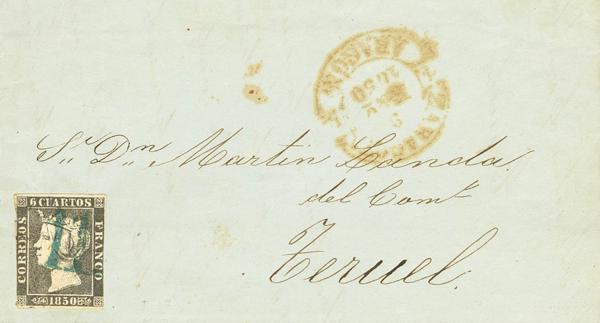 Sr. Dn. Martin Landa.
del Comº
Teruel.
6 CUARTOS
CORREOS
FRANCO
1850
ARAGON